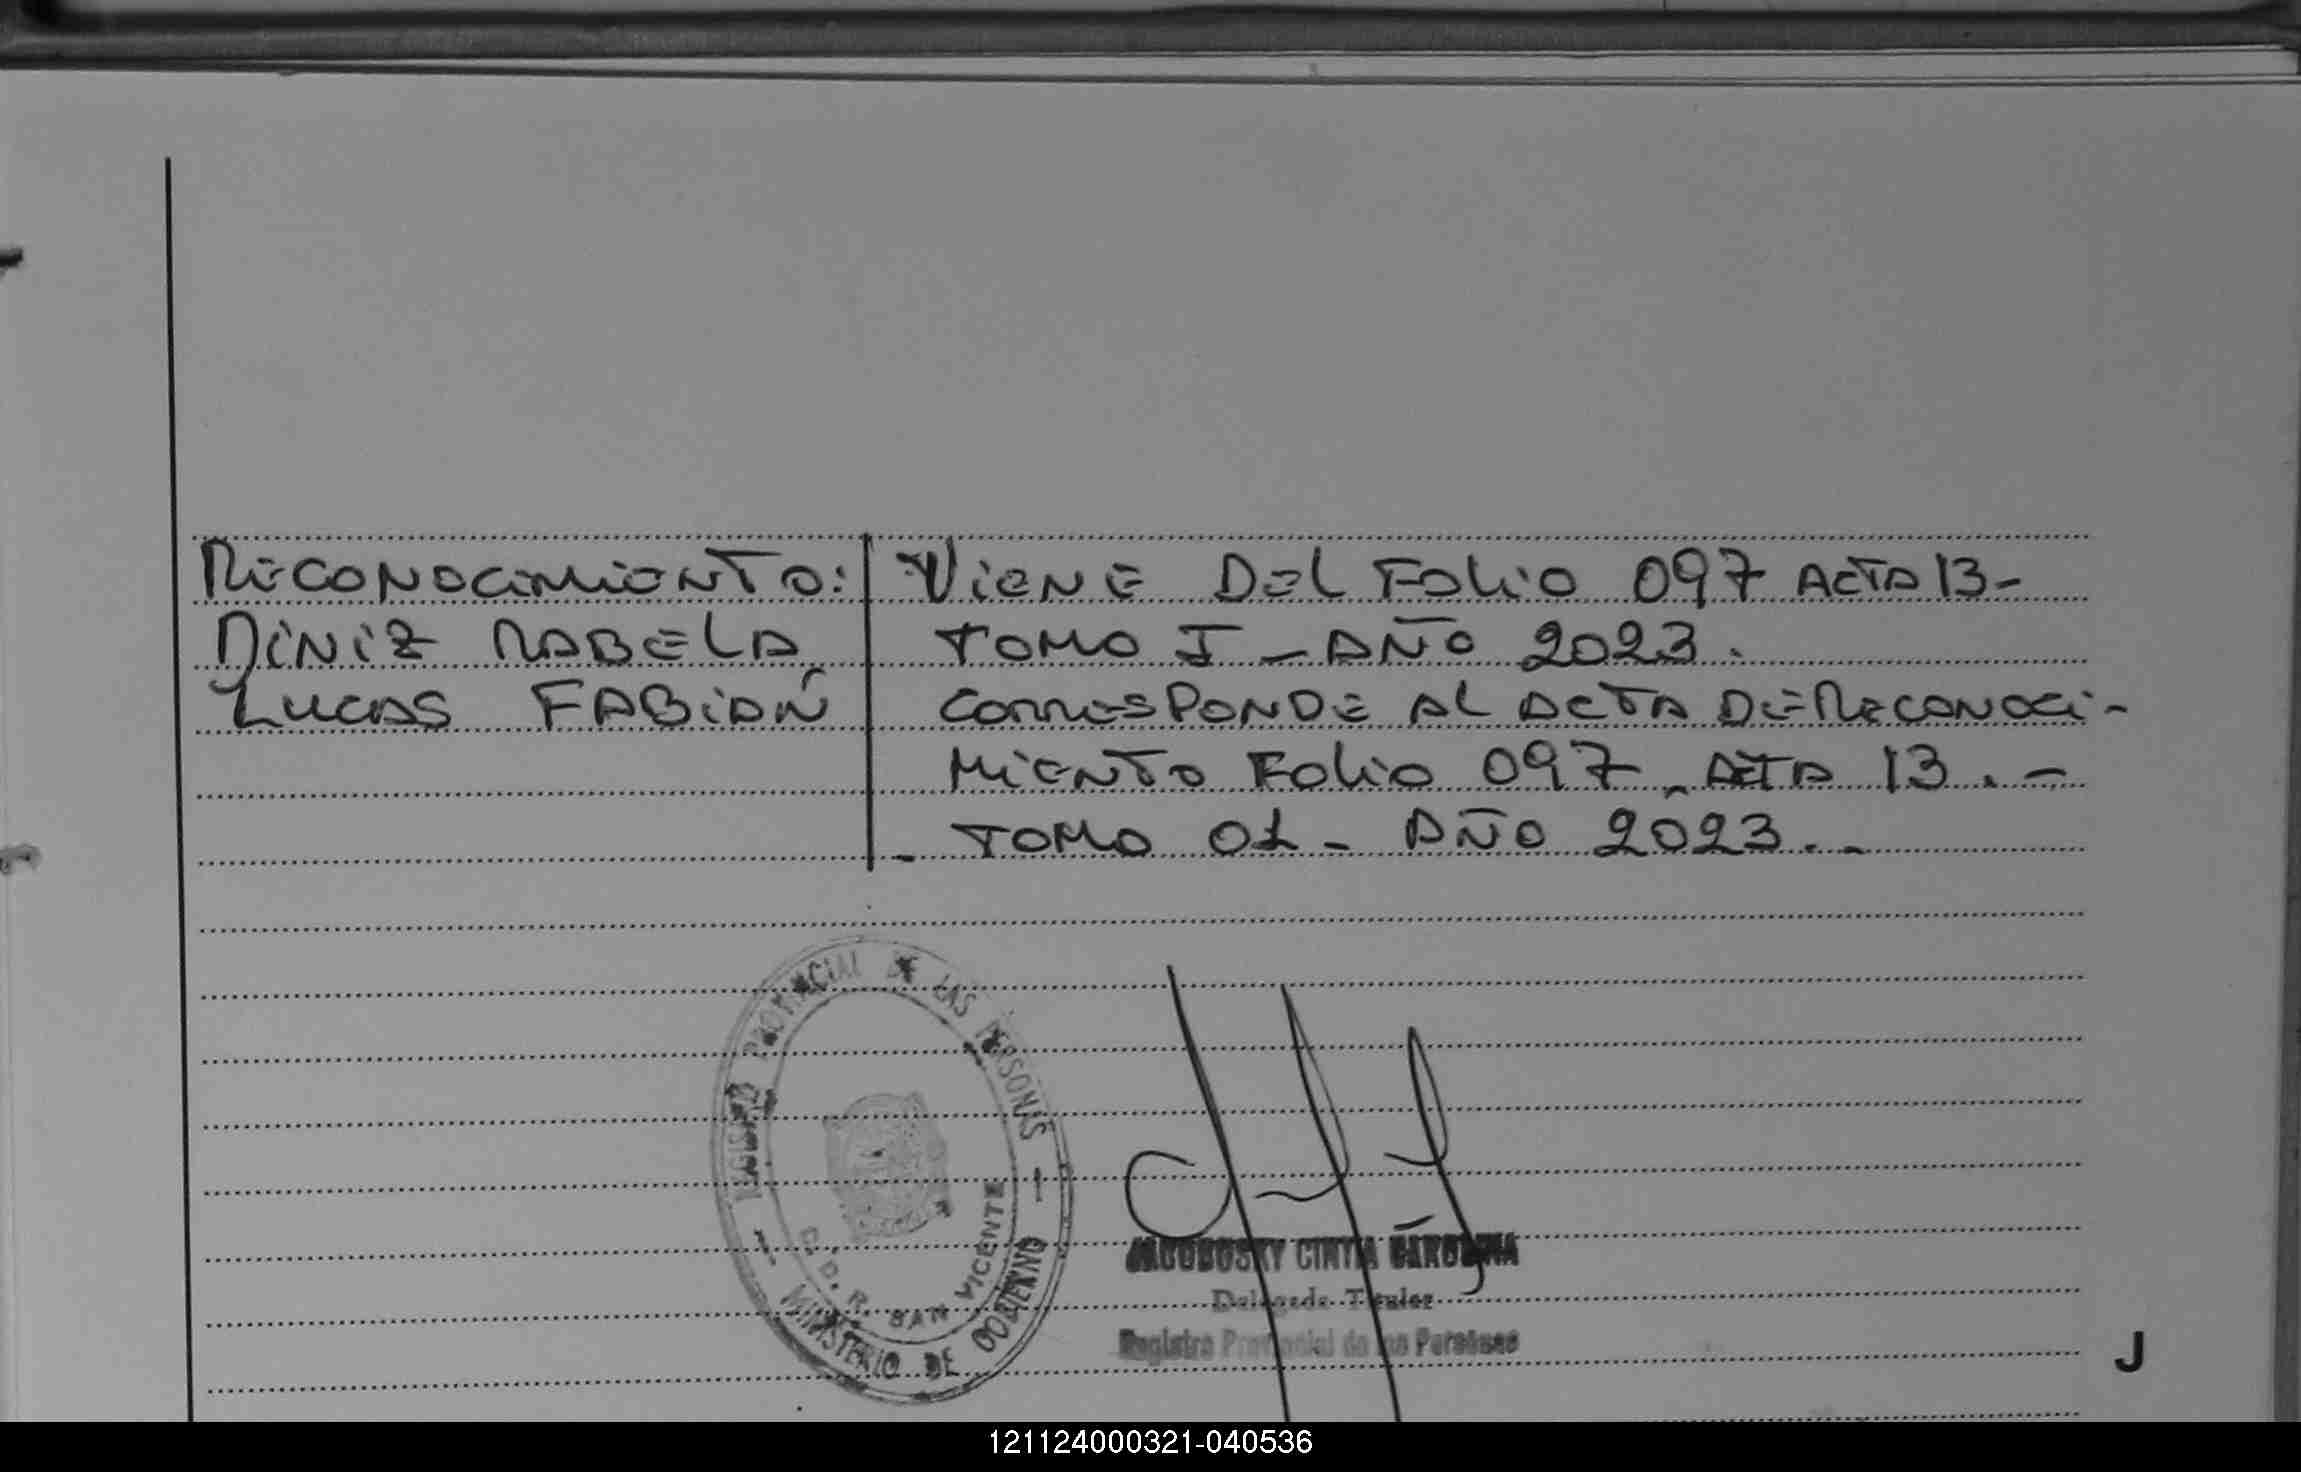 RECONOCIMIENTO:
DINIZ RABELA
LUCAS FABIÁN
VIENE DEL FOLIO 097 ACTA 13-
TOMO I - AÑO 2023.
CORRESPONDE AL ACTA DE RECONOCI-
MIENTO FOLIO 097 ACTA 13.-
TOMO 01- AÑO 2023.-
REGISTRO PROVINCIAL DE LAS PERSONAS
MINISTERIO DE GOBIERNO
C.D.R. SAN VICENTE
CINTIA CAROLINA
Delegada Titular
Registro Provincial de las Personas
J
121124000321-040536